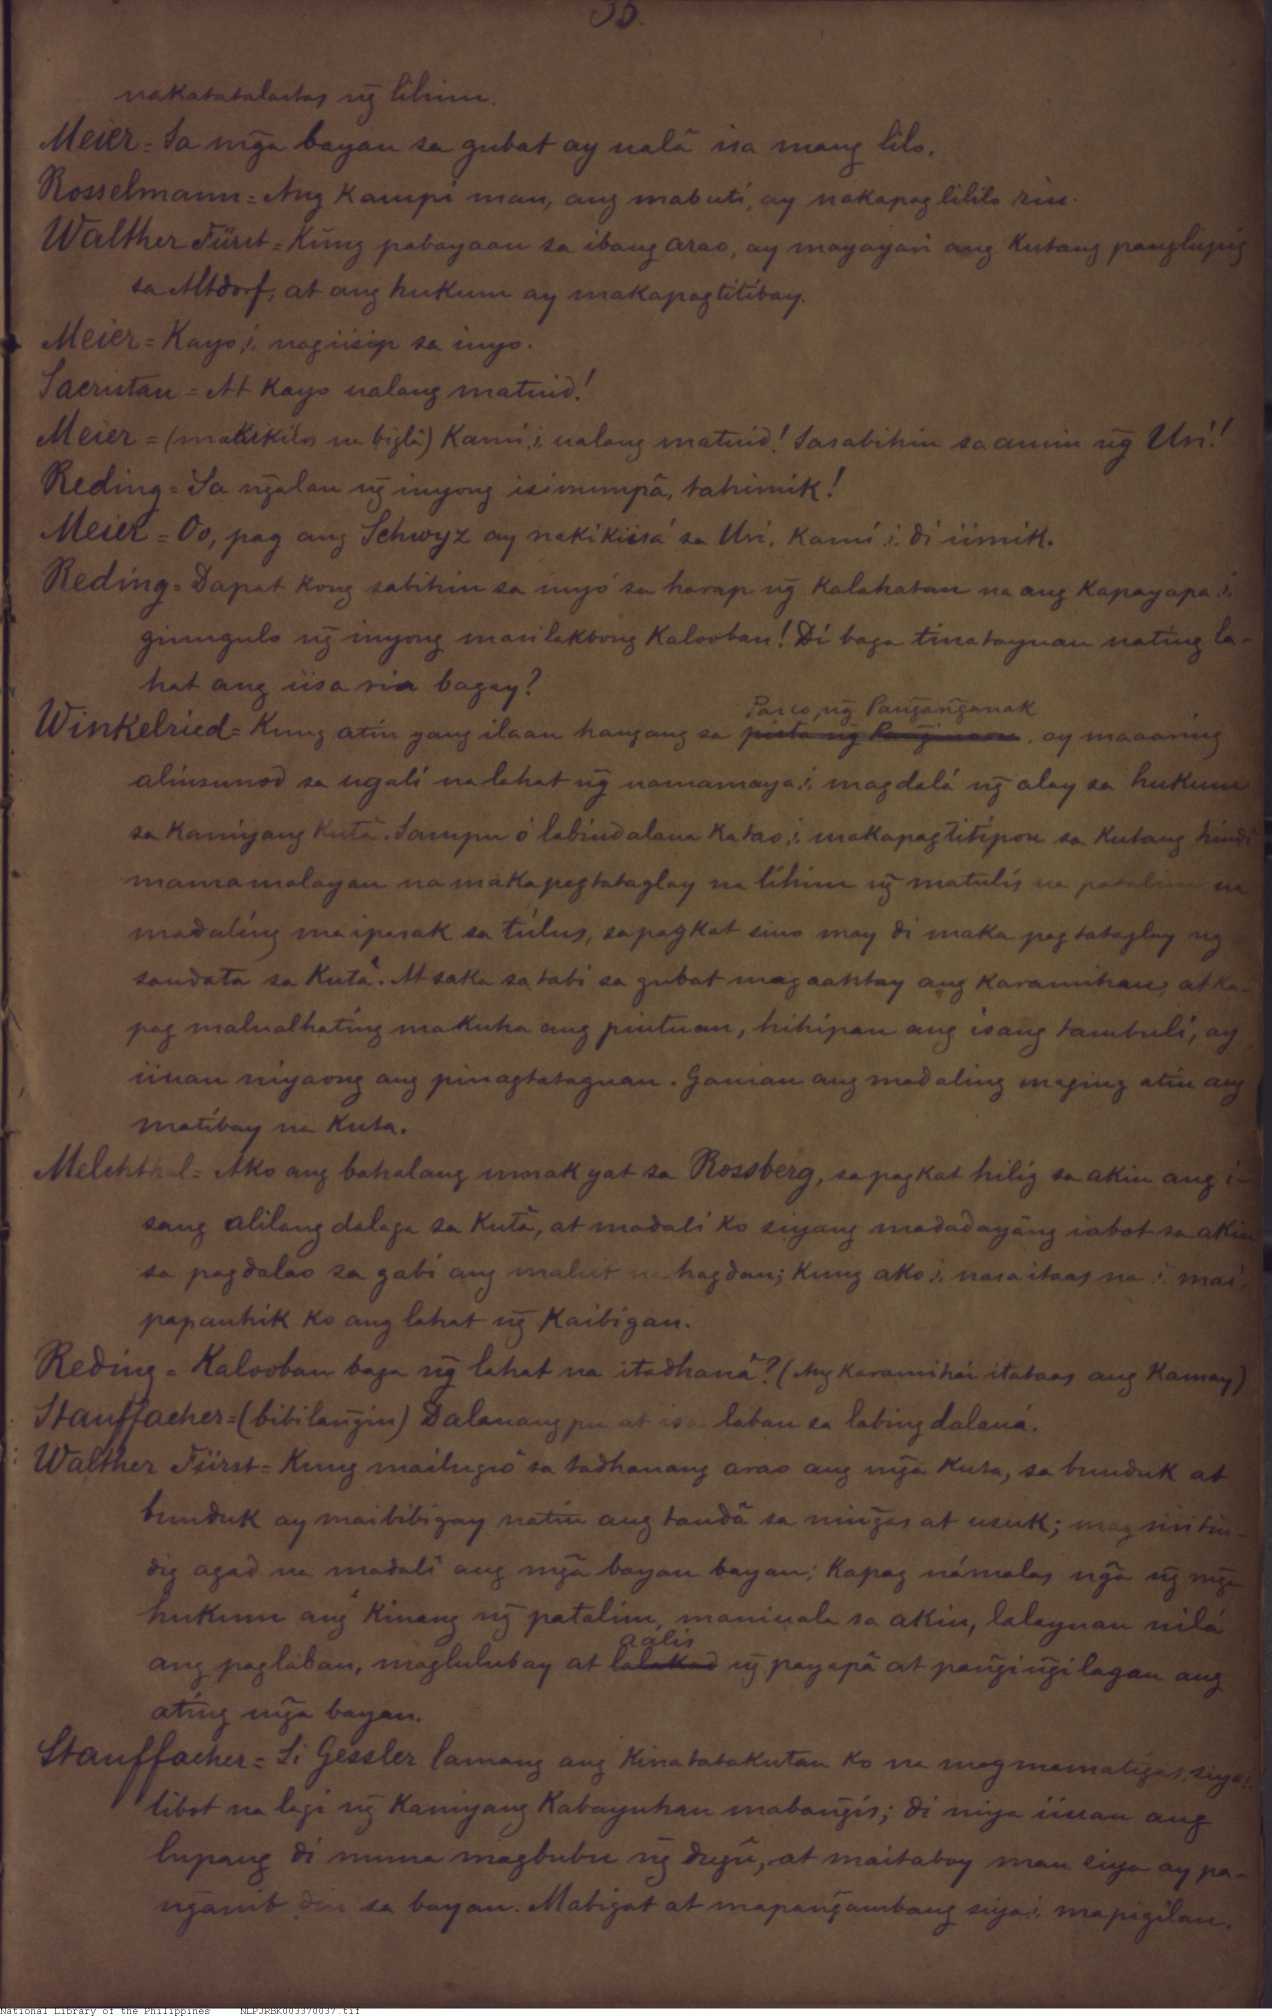 35.
nakatatalastas ng̃ lihim.
Meier = Sa mg̃a bayan sa gubat ay ualâ isa mang lilo.
Rosselmann = Ang kampi man, ang mabuti, ay nakapaglililo rin.
Walther Fürst = Kung pabayaan sa ibang arao, ay mayayari ang kutang panglupig
sa Altdorf, at ang hukum ay makapagtitibay.
Meier = Kayo,i, nagiisip sa inyo.
Sacristan = At kayo ualang matuid!
Meier = (makikilos na biglâ) Kami,i, ualang matuid! Sasabihin sa amin ng̃ Uri!
Reding = Sa ng̃alan ng̃ inyong isinumpâ, tahimik!
Meier = Oo, pag ang Schwyz ay nakikiisá sa Uri, kami,i, di iimik.
Reding = Dapat kong sabihin sa inyó sa harap ng̃ kalahatan na ang kapayapa,i,
ginugulo ng̃ inyong masilakbong kalooban! Di baga tinatayuan nating la-
hat ang iisa ria bagay?
Winkelried = Kung atin yang ilaan hangang sa Pasco ng̃ Pang̃ang̃anak ay maaaring
alinsunod sa ugali na lahat ng̃ namamaya,i, magdalá ng̃ alay sa hukum
sa kaniyang kutâ. Sampu ó labindalaua katao,i, makapagtitipon sa kutang hindi
mamamalayan na makapagtataglay na lihim ng̃ matulis na patalim na
madaling maipasak sa túlus, sapagkat sino may di maka pagtataglay ng
sandata sa kutâ. At saka sa tabi sa gubat magaantay ang karamihan, at ka-
pag malualhating makuha ang pintuan, hihipan ang isang tambuli, ay
iiuan niyaong ang pinagtataguan. Ganian ang madaling maging atin ang
matibay na kuta.
Melchthal = Ako ang bahalang umakyat sa Rossberg, sapagkat hilig sa akin ang i-
sang alilang dalaga sa kutâ, at madali ko siyang madadayáng iabot sa akin
sa pagdalao sa gabi ang maliit na hagdan; kung ako,i, nasa itaas na,i, mai-
papanhik ko ang lahat ng̃ kaibigan.
Reding = Kalooban baga ng̃ lahat na itadhanâ? (Ang karamihá,i itataas ang kamay)
Stauffacher = (bibilang̃in) Dalauang pu at isa laban sa labing dalauá.
Walther Fürst = Kung mailugsô sa tadhanang arao ang mg̃a kuta, sa bunduk at
bunduk ay maibibigay natin ang tandâ sa ning̃as at usuk; magsisitin-
dig agad na madali ang mg̃a bayan bayan; kapag námalas ng̃a ng̃ mg̃a
hukum ang kinang ng̃ patalim, maniuala sa akin, lalayuan nilá
ang paglaban, maglulubay at aális ng̃ payapâ at pang̃ing̃ilagan ang
ating mg̃a bayan.
Stauffacher = Si Gessler lamang ang kinatatakutan ko na magmamatigas, siya,i,
libot na lagi ng̃ kaniyang kabayuhan mabang̃is; di niya iiuan ang
lupang di muna magbubu ng̃ dugû, at maitaboy man siya ay pa-
ng̃anib din sa bayan. Mabigat at mapang̃ambang siya,i, mapigilan.
National Library of the Philippines NLPJRBK003370037.tif